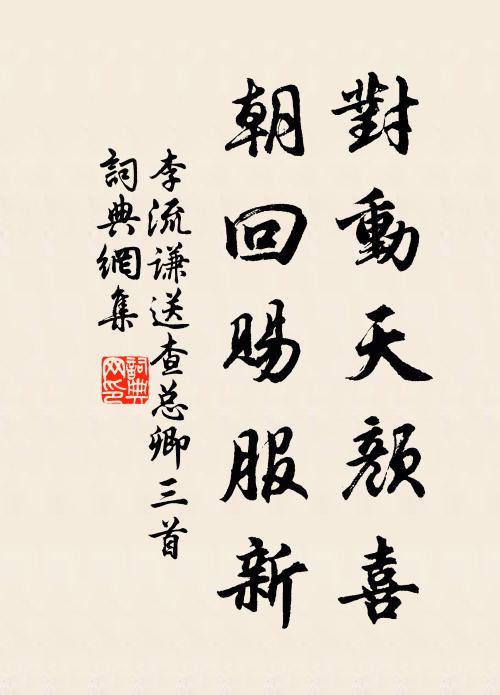 對動天顏喜
朝回賜服新
李流谦送查总卿三首
詞典網集
詞典网印